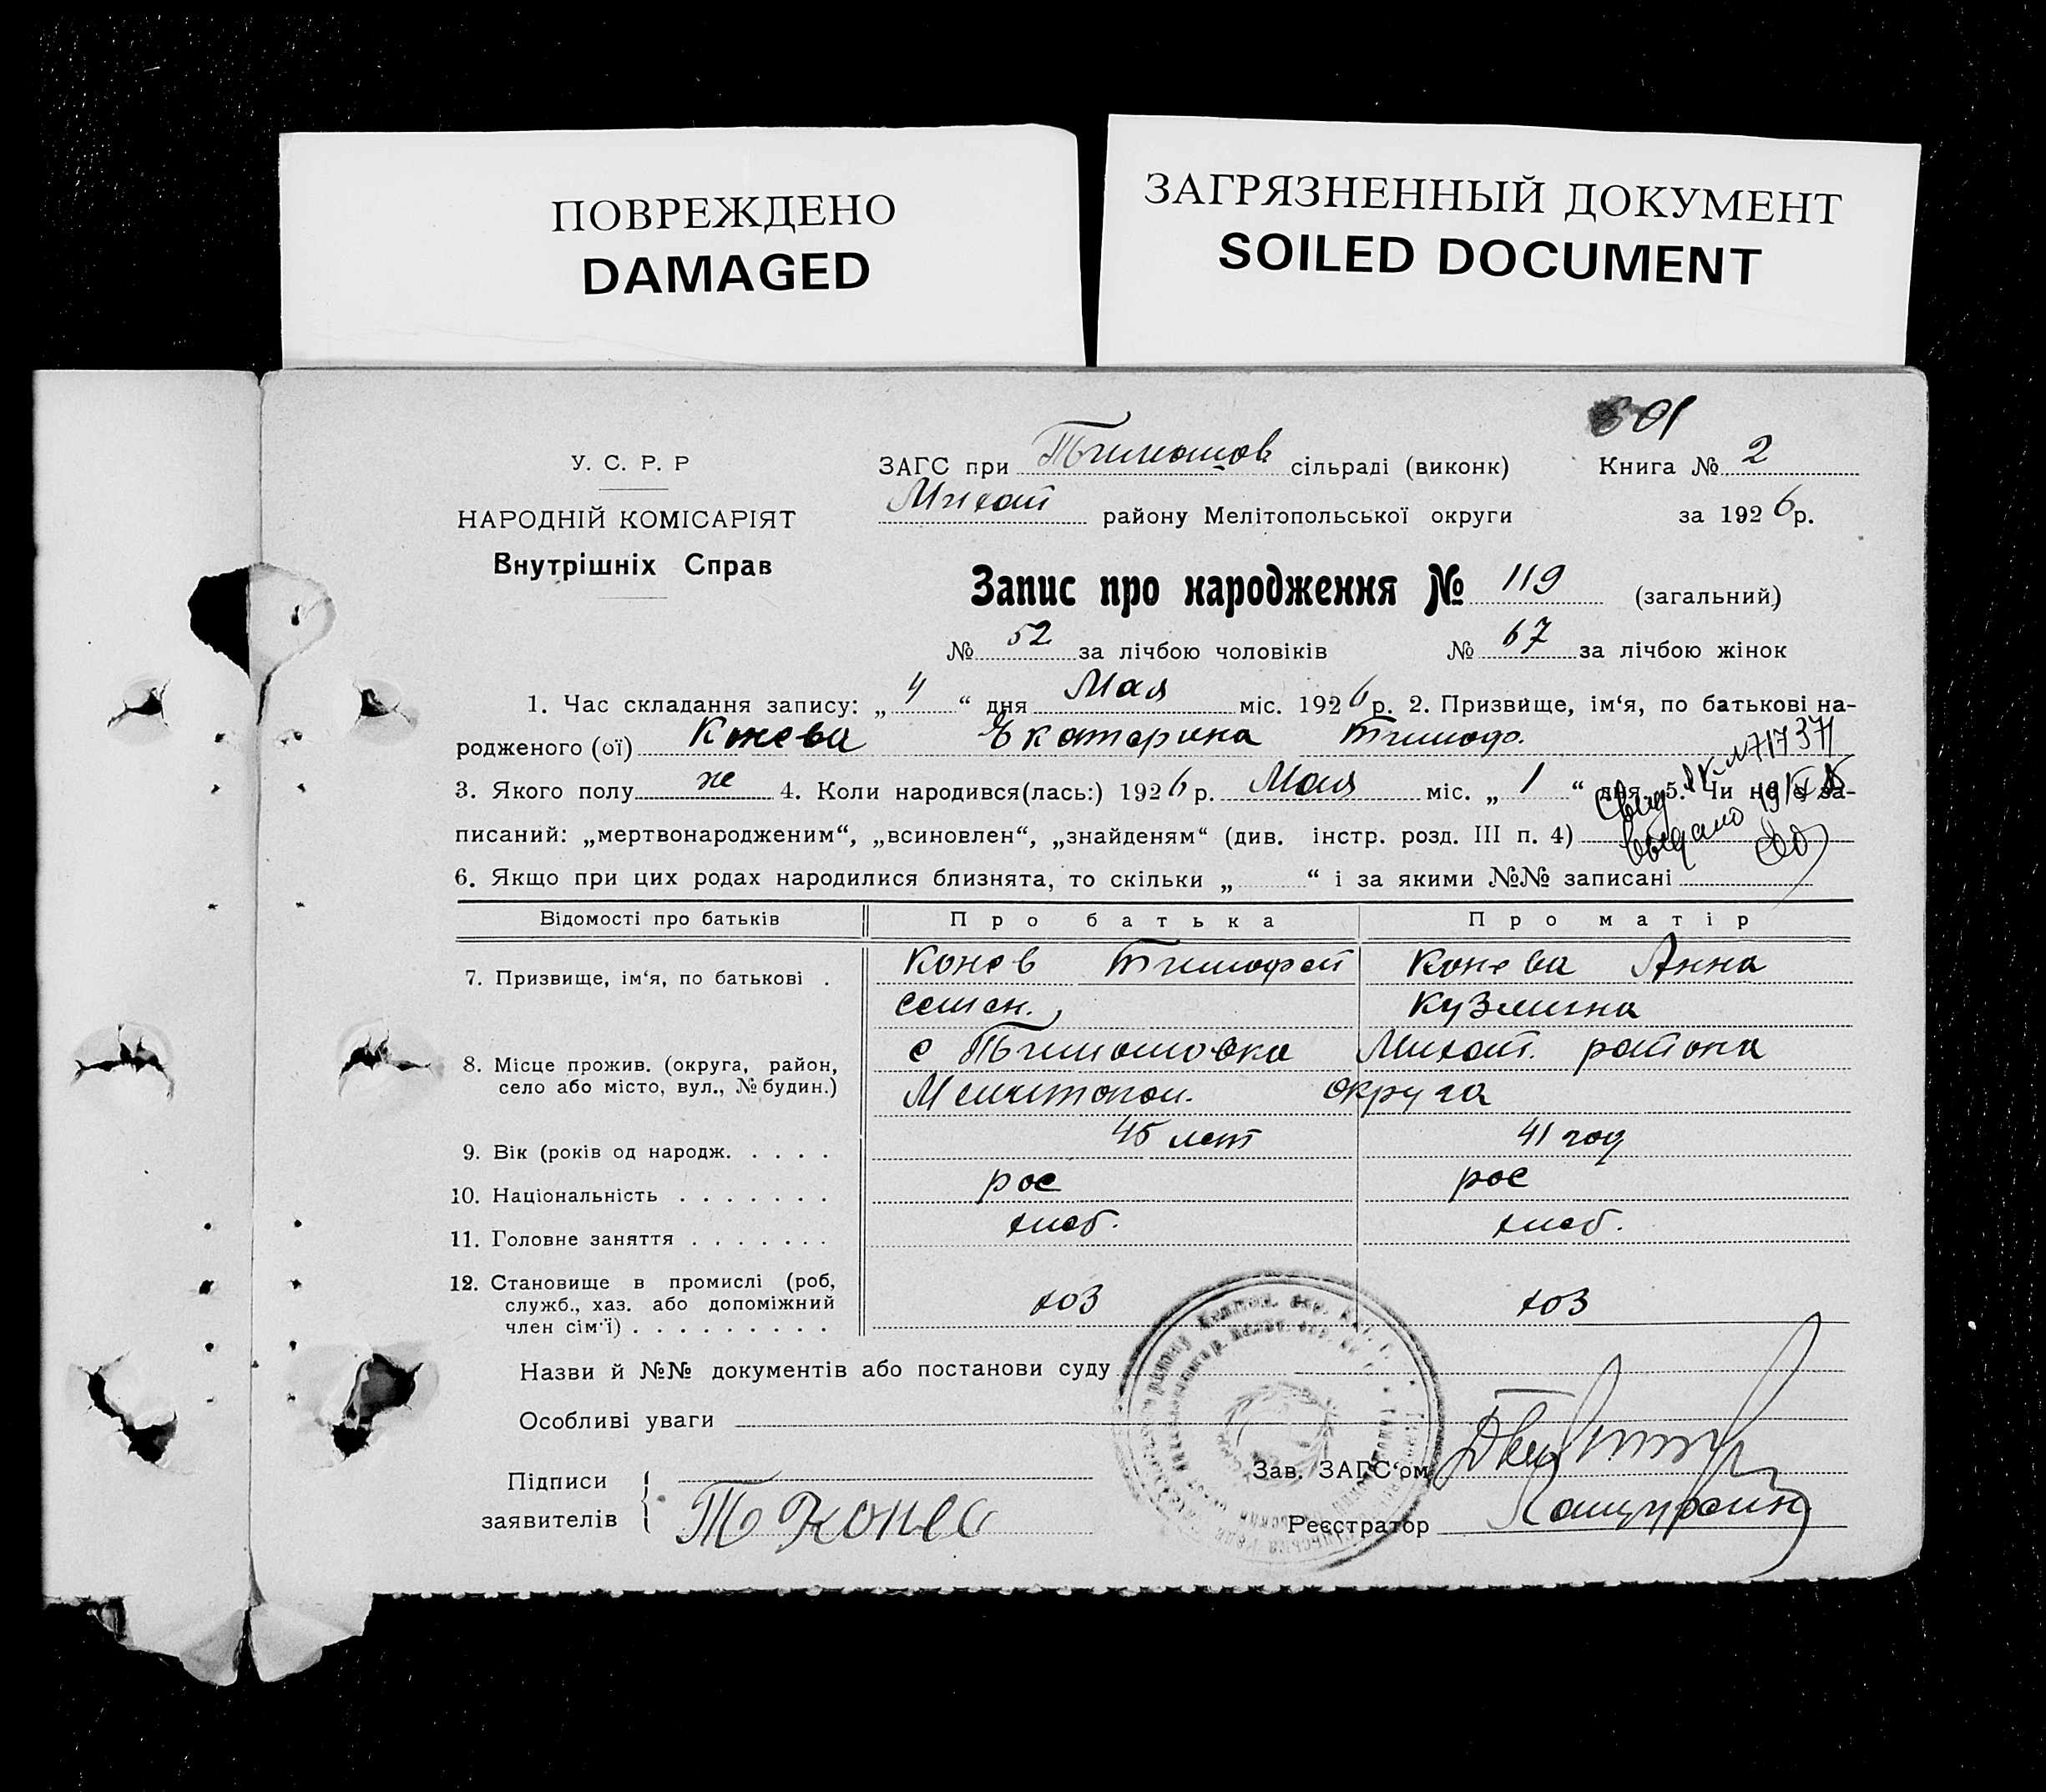 ПОВРЕЖДЕНО
DAMAGED
ЗАГРЯЗНЕННЫЙ ДОКУМЕНТ
SOILED DOCUMENT
У. С. Р. Р
НАРОДНІЙ КОМІСАРІЯТ
Внутрішніх Справ
ЗАГС при Тимошов сільраді (виконк)
Михай району Мелітопольської округи
Книга № 2
за 1926 р.
Запис про народження № 119 (загальний)
№ 52 за лічбою чоловіків № 67 за лічбою жінок
1. Час складання запису: „4“ дня Мая міс. 1926 р. 2. Призвище, ім‘я, по батькові на-
родженого (ої) Конева Екатерина Тимоф.
3. Якого полу ж 4. Коли народився(лась:) 1926 р. Мая міс. „1“ дня 5. Чи не є за-
писаний: „мертвонародженим“, „всиновлен“, „знайденям“ (див. інстр. розд. III п. 4)
выдано
6. Якщо при цих родах народилися близнята, то скільки „ “ і за якими №№ записані
Відомості про батьків Про батька Про матір
7. Призвище, ім‘я, по батькові . Конев Тимофей Конева Анна
семен. Кузмина
8. Місце прожив. (округа, район, с Тимошовка Михай. района
село або місто, вул., № будин.) Мелитопол. округа
9. Вік (років од народж. . . . . 45 лет 41 год
10. Національність . . . . . . . рос рос
11. Головне заняття . . . . . . . хлеб. хлеб.
12. Становище в промислі (роб,
служб., хаз. або допоміжний хоз хоз
член сім‘ї) . . . . . . . . .
Назви й №№ документів або постанови суду
Особливі уваги
Підписи
заявителів Т Конев
Зав. ЗАГС‘ом
Реєстратор